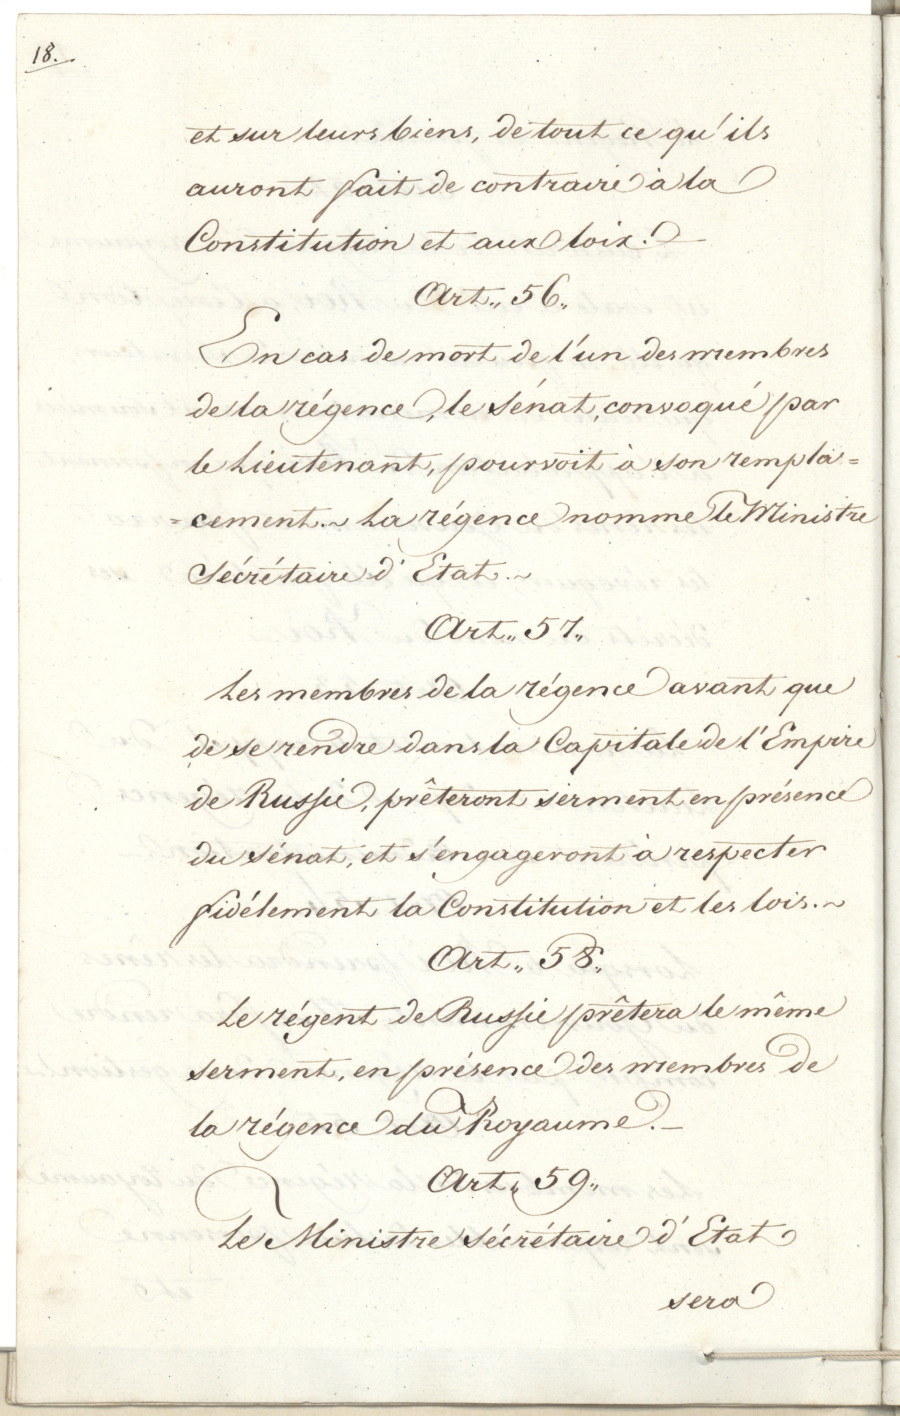 18.
et sur leurs biens, de tout ce qu'ils
auront fait de contraire à la
Constitution et aux loix.
Art. 56.
En cas de mort de l'un des membres
de la régence, le Sénat, convoqué par
le Lieutenant, pourvoit à son rempla=
=cement. La régence nomme le Ministre
Sécrétaire d'Etat.
Art. 57.
Les membres de la régence avant que
de se rendre dans la Capitale de l'Empire
de Russie, prêteront serment en présence
du Sénat, et s'engageront à respecter
fidélement la Constitution et les lois.
Art. 58.
Le régent de Russie prêtera le même
serment, en présence des membres de
la régence du Royaume.
Art. 59.
Le Ministre Sécrétaire d'Etat
sera